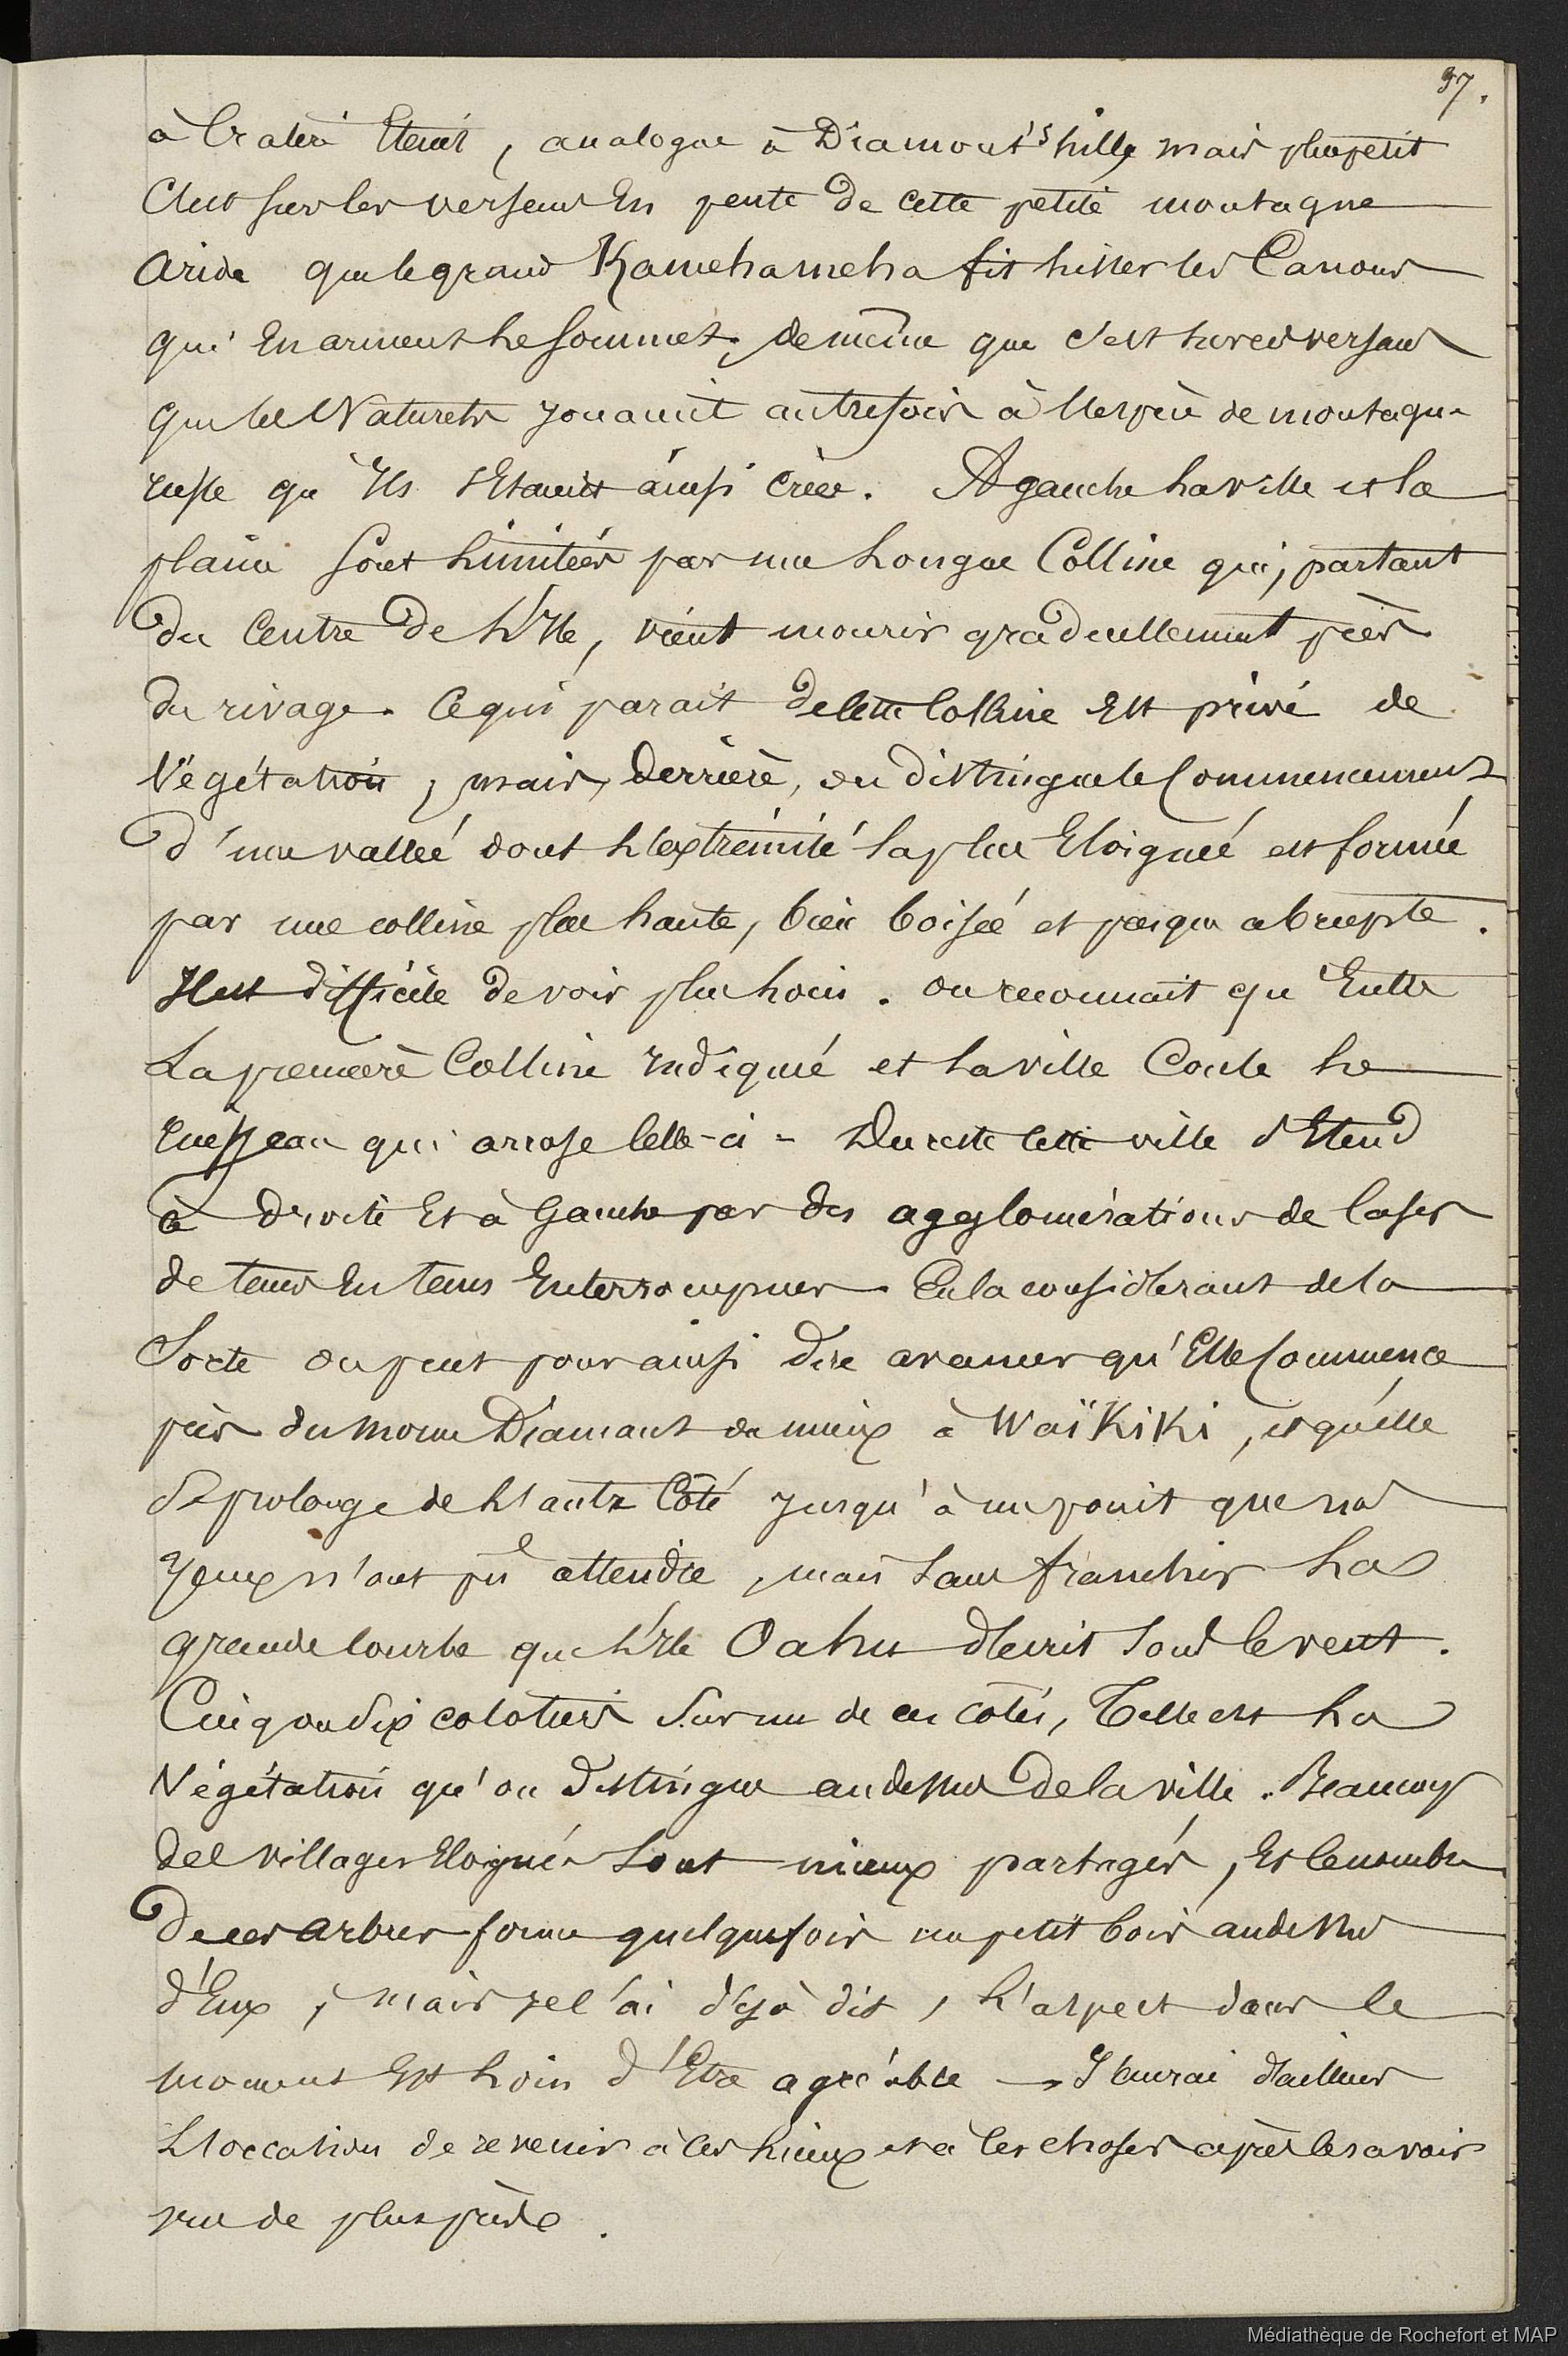 37.
à Cratère Eteint, analogue à Diamont's hill, mais plus petit
C'est sur les versans En pente de cette petite montagne
Aride que le grand Kamehameha fit hisser les Canons
qui En arment le Sommet, de même que c'est sur ces versans
que les Naturels Jouaient autrefois à l'espèce de montagne
russe qu'Ils s'Etaient ainsi créée. A gauche la ville et la
plaine Sont limitées par une longue Colline qui, partant
du Centre de l'Ile, vient mourir graduellement près
du rivage. Ce qui parait de cette Colline Est privé de
Végétation, mais, derrière, on distingue le Commencement
d'une vallée dont l'extrémité la plus Eloignée est formée
par une colline plus haute, bien boisée et presque abrupte.
Il est difficile de voir plus loin. on reconnait qu'Entre
La première Colline Indiquée et la ville Coule le
ruisseau qui arrose Celle-ci = Du reste Cette ville s'Etend
à droite Et à Gauche par des agglomérations de Cases
de tems En tems Interrompues. En la considérant de la
Sorte on peut pour ainsi dire avancer qu'Elle Commence
près du Morne Diamant ou mieux à WaïKiKi, et qu'elle
Se prolonge de l'autre Côté Jusqu'à un point que nos
Yeux n'ont pû atteindre, mais Sans franchir la
grande Courbe que l'Ile Oahu décrit Sous le vent.
Cinq ou Six cocotiers Sur un de ces côtés, Telle est la
Végétation qu'on distingue au dessus de la ville. Beaucoup
des villages Eloignés Sont mieux partagés, Et le nombre
de ces Arbres forme quelquefois un petit bois au dessus
d'Eux, mais Je l'ai déjà dit, l'aspect dans le
moment Est loin d'Etre agréable — J'aurai d'ailleurs
L'occasion de revenir à ces lieux et à ces choses après les avoir
vu de plus près.
Médiathèque de Rochefort et MAP